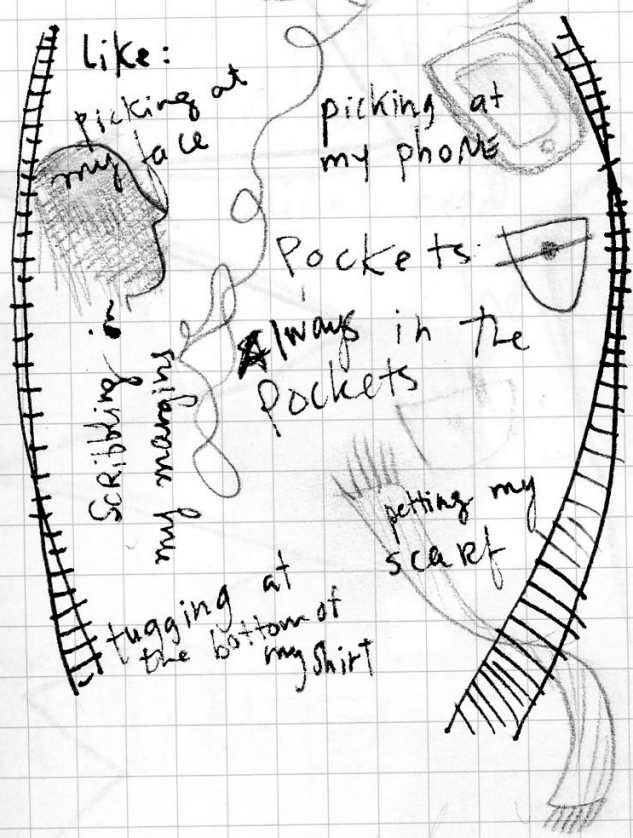 like:
picking at
my face
picking at
my phone
Pockets
Always in the
Pockets
Scribbling in
my margins
petting my
scarf
tugging at
the bottom of
my shirt